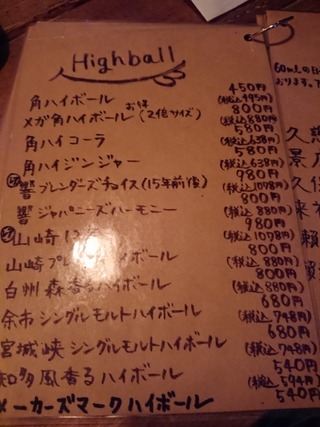 Highball
角ハイボール 450円
(税込495円)
お得
メガ角ハイボール(2倍サイズ) 800円
(税込880円)
角ハイコーラ 580円
(税込638円)
角ハイジンジャー 580円
(税込638円)
響ブレンダーズチョイス(15年前後) 980円
(税込1078円)
響ジャパニーズハーモニー 800円
(税込880円)
山崎12 980円
(税込1078円)
山崎 ハイボール 800円
(税込880円)
白州森香るハイボール 800円
(税込880円)
余市シングルモルトハイボール 680円
(税込748円)
宮城峡シングルモルトハイボール 680円
(税込748円)
知多風香るハイボール 540円
(税込594円)
メーカーズマークハイボール 540円
60mlの
おります。